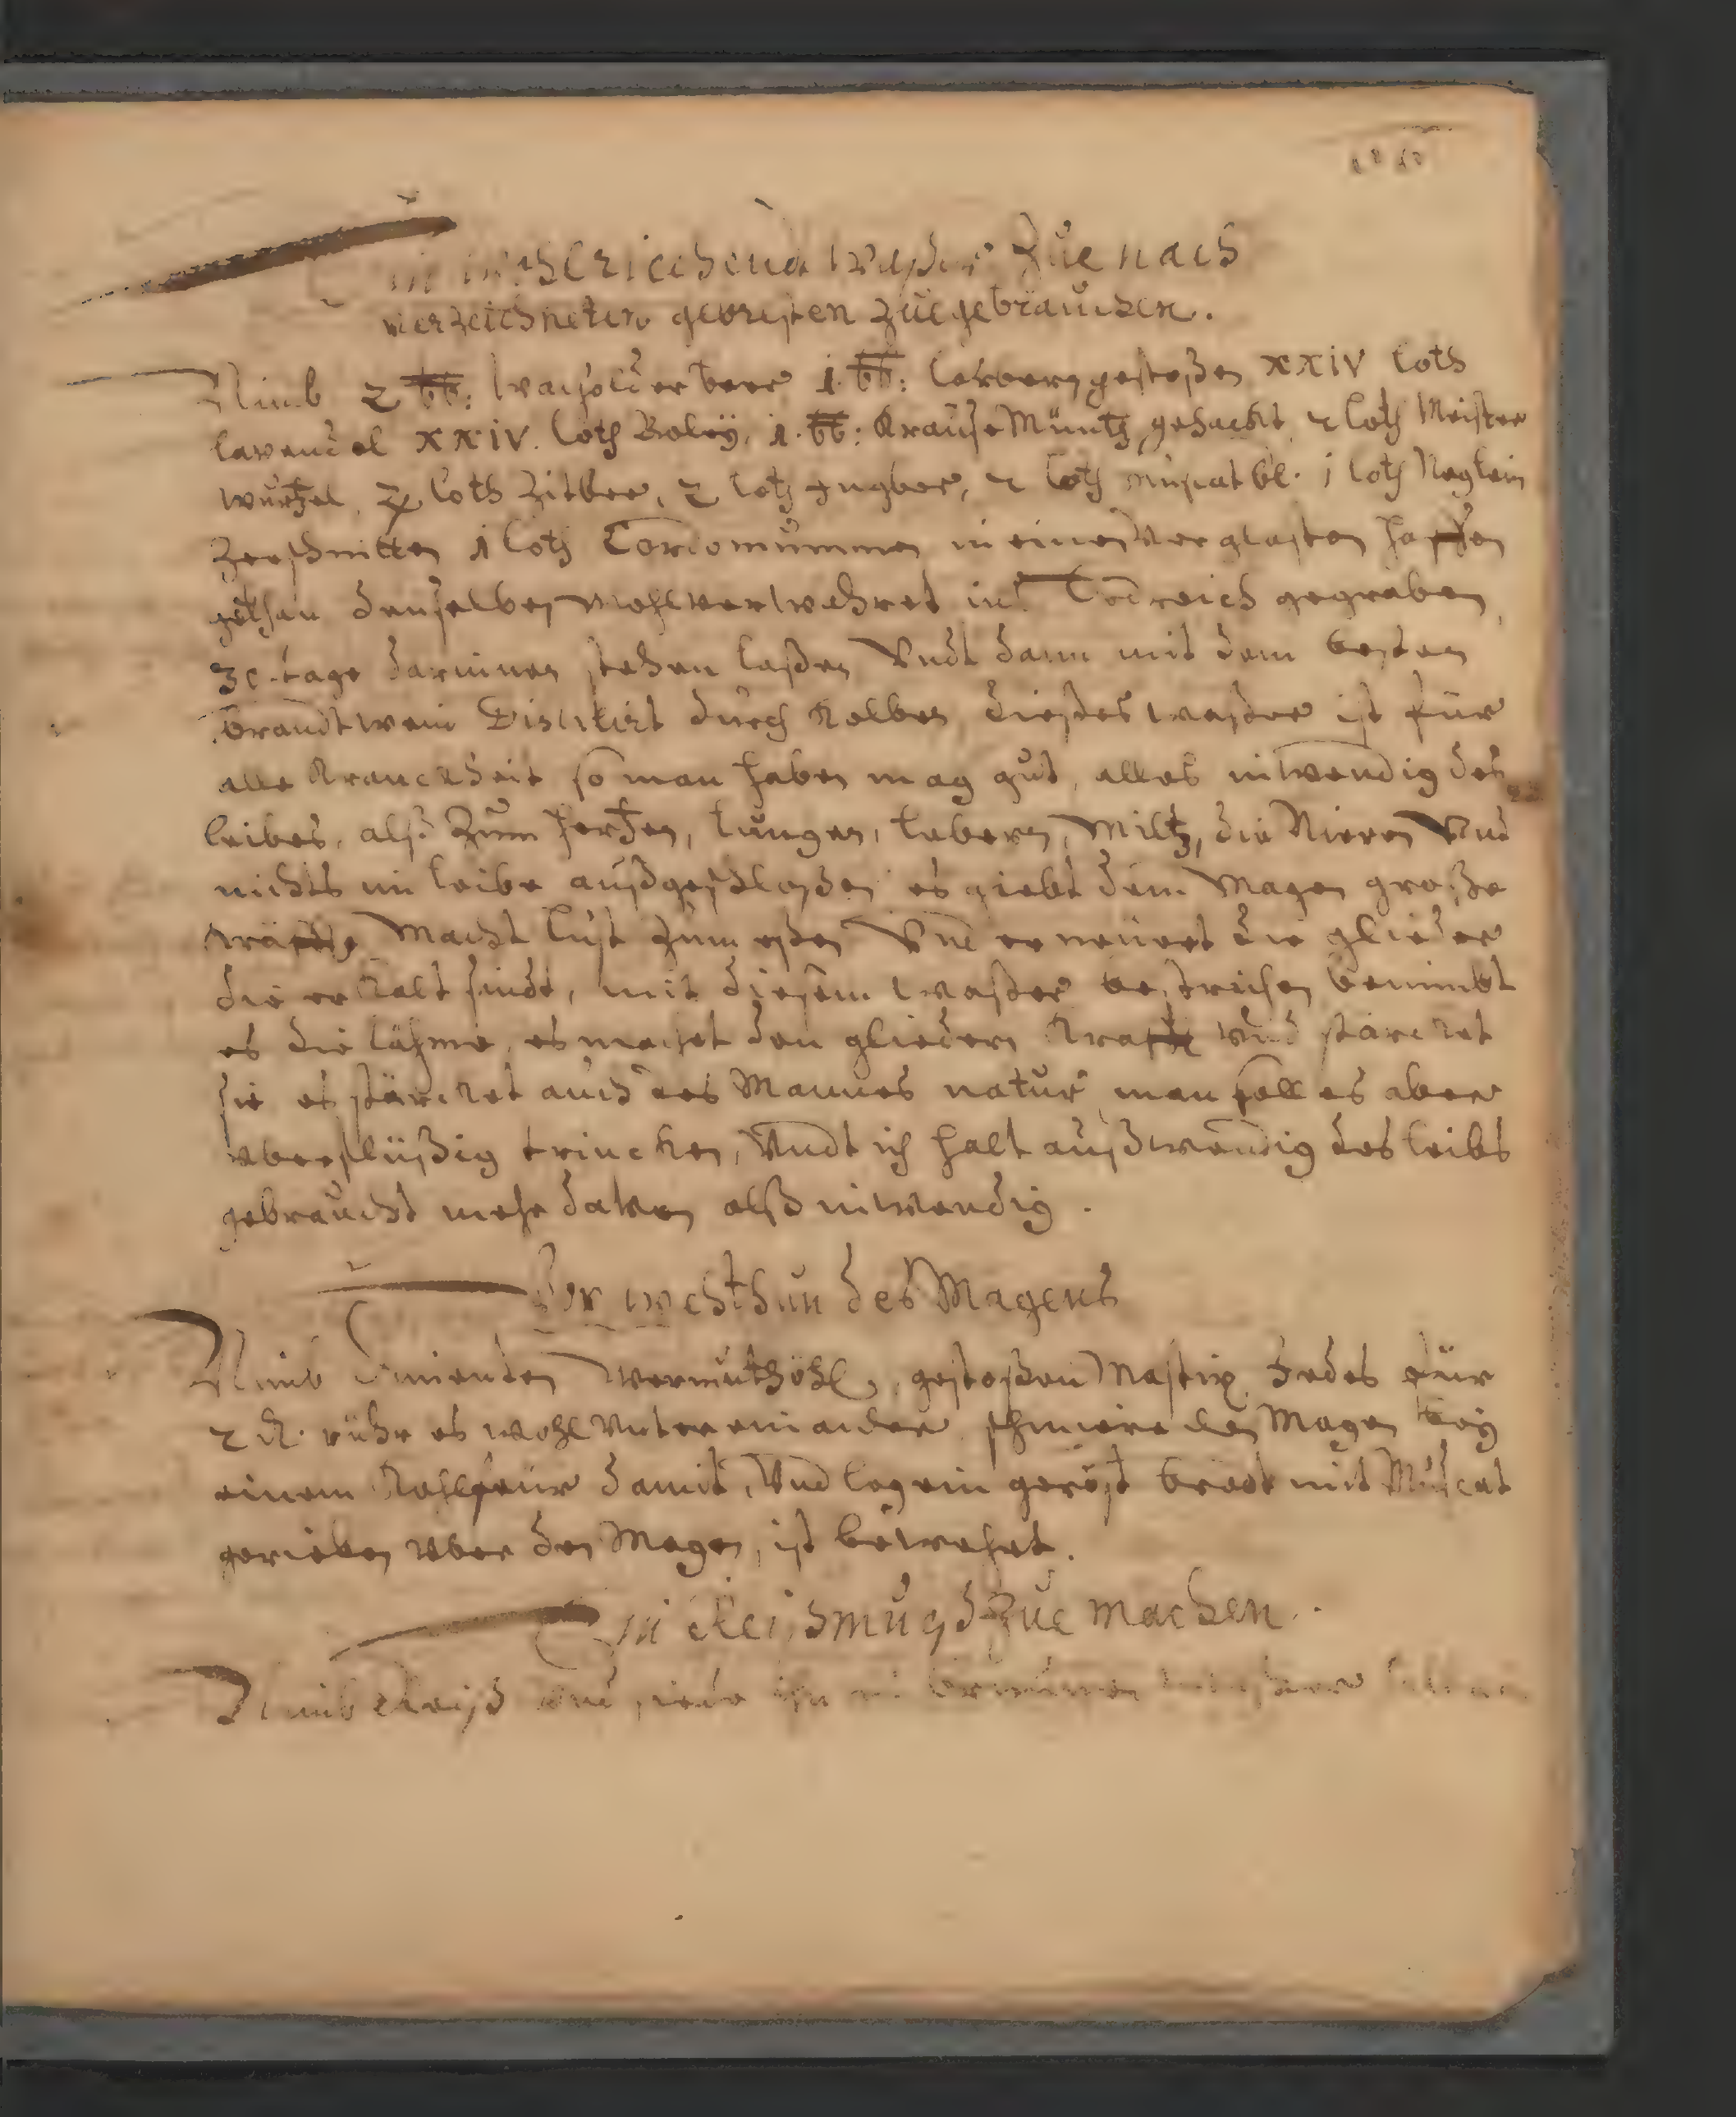 wohlriechend waßer zue nach
verzeichneten gebresten zuegebrauchen.
Nimb 2 ℔: wacholderbeer 1. ℔: lorbern gestoßen XXIV loth
lavendel XXIV. loth Boley, 1. ℔: Krause Müntz gehackt, 2 loth Meister
wurtzel, loth Zitber, 2 loth Ingber, 2 loth muscatbl. 1 loth Neglein
Zerschnitten 1 loth Cordomummen in einen verglasten haffen
gethan denselben wohl verwahret in Erdreich gegraben
30. tage darinnen stehen laßen Undt dann mit dem besten
brandtwein Distilirt durch Kolben, dießes waßer ist für
alle Kranckheit so man haben mag gut, alles inwendig des
leibes, alß Zum hertzen, lungen, lebern, Miltz, die Nieren Und
nichts im leibe außgeschloßen es giebt dem Magen große
kräffte, Macht lust zum eßen Und erneuret die glieder
die erkalt sindt, mit diesem waßer bestrichen benimbt
es die lähme, es machet den gliedern Krafft und stärcket
sie es stärcket auch des Mannes natur, man soll es aber
überflüßig trincken, Undt ich halt außwendig des leibs
gebraucht mehr davon alß inwendig.
Vor wehthun des Magens
Nimb Wermuthöhl, gestoßen Mastix, Jedes für
2 rühr es wohl Untereinander, schmiere den Magen bey
einem Kohlfeür damit, Und leg ein geröst brodt mit Muscat
gerieben über den Magen, ist bewehrt.
Ein zue machen.
Nimb und siede